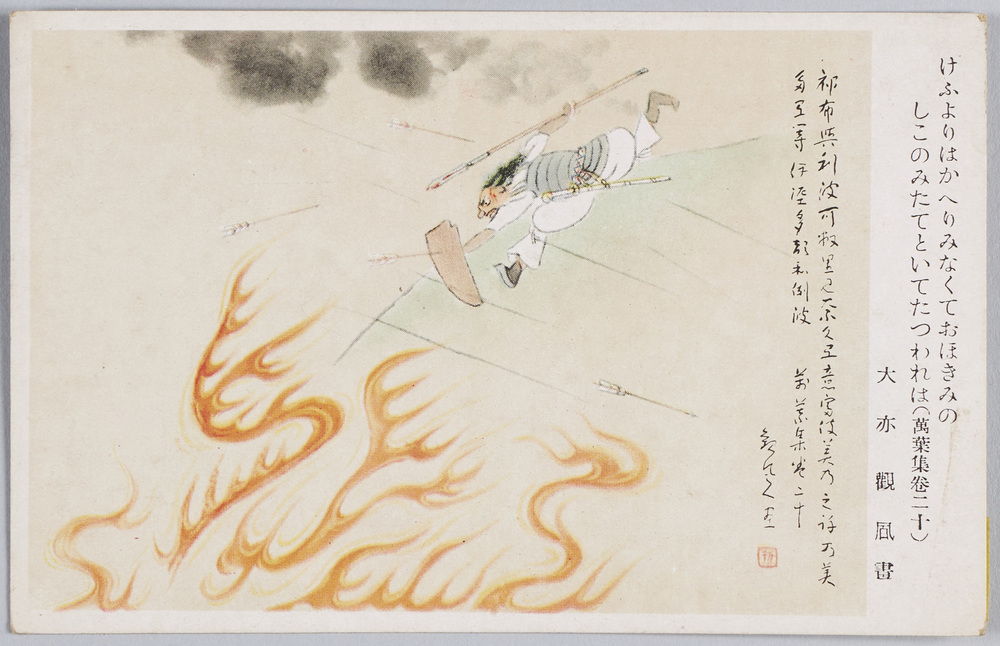 けふよりはかへりみなくておほきみの
しこのみたてといてたつわれは(萬葉集卷二十)
大亦觀風畫
祁布與利波可敝里見奈久弖意富伎美乃之許乃美
多弖等伊埿多都和例波 萬葉集卷二十
觀風